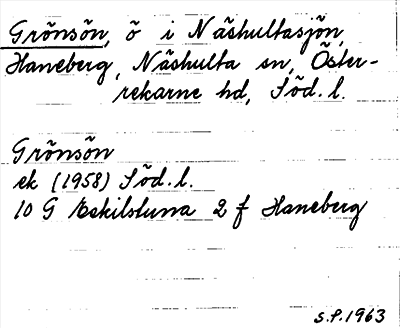 Grönsön, ö i Näshultasjön,
Haneberg, Näshulta sn, Öster-
rekarne hd, Söd. l.
Grönsön
ek (1958) Söd. l.
10 G Eskilstuna 2 f Haneberg
S.P. 1963